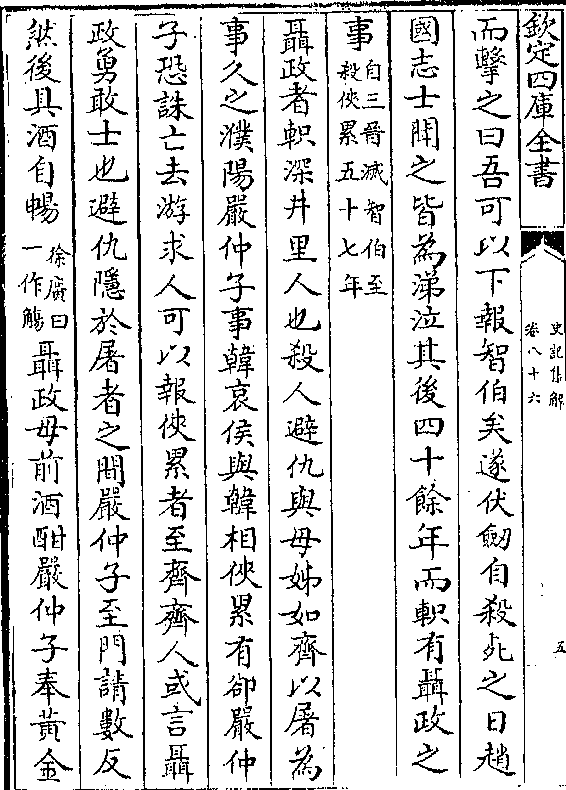 欽定四庫全書
史記集解
卷八十六
五
而擊之曰吾可以下報智伯矣遂伏劒自殺死之日趙
國志士聞之皆為涕泣其後四十餘年而軹有聶政之
事自三晉滅智伯至殺俠累五十七年
聶政者軹深井里人也殺人避仇與母姊如齊以屠為
事久之濮陽嚴仲子事韓哀侯與韓相俠累有郤嚴仲
子恐誅亡去游求人可以報俠累者至齊齊人或言聶
政勇敢士也避仇隱於屠者之間嚴仲子至門請數反
然後具酒自暢徐廣曰一作觴聶政母前酒酣嚴仲子奉黃金